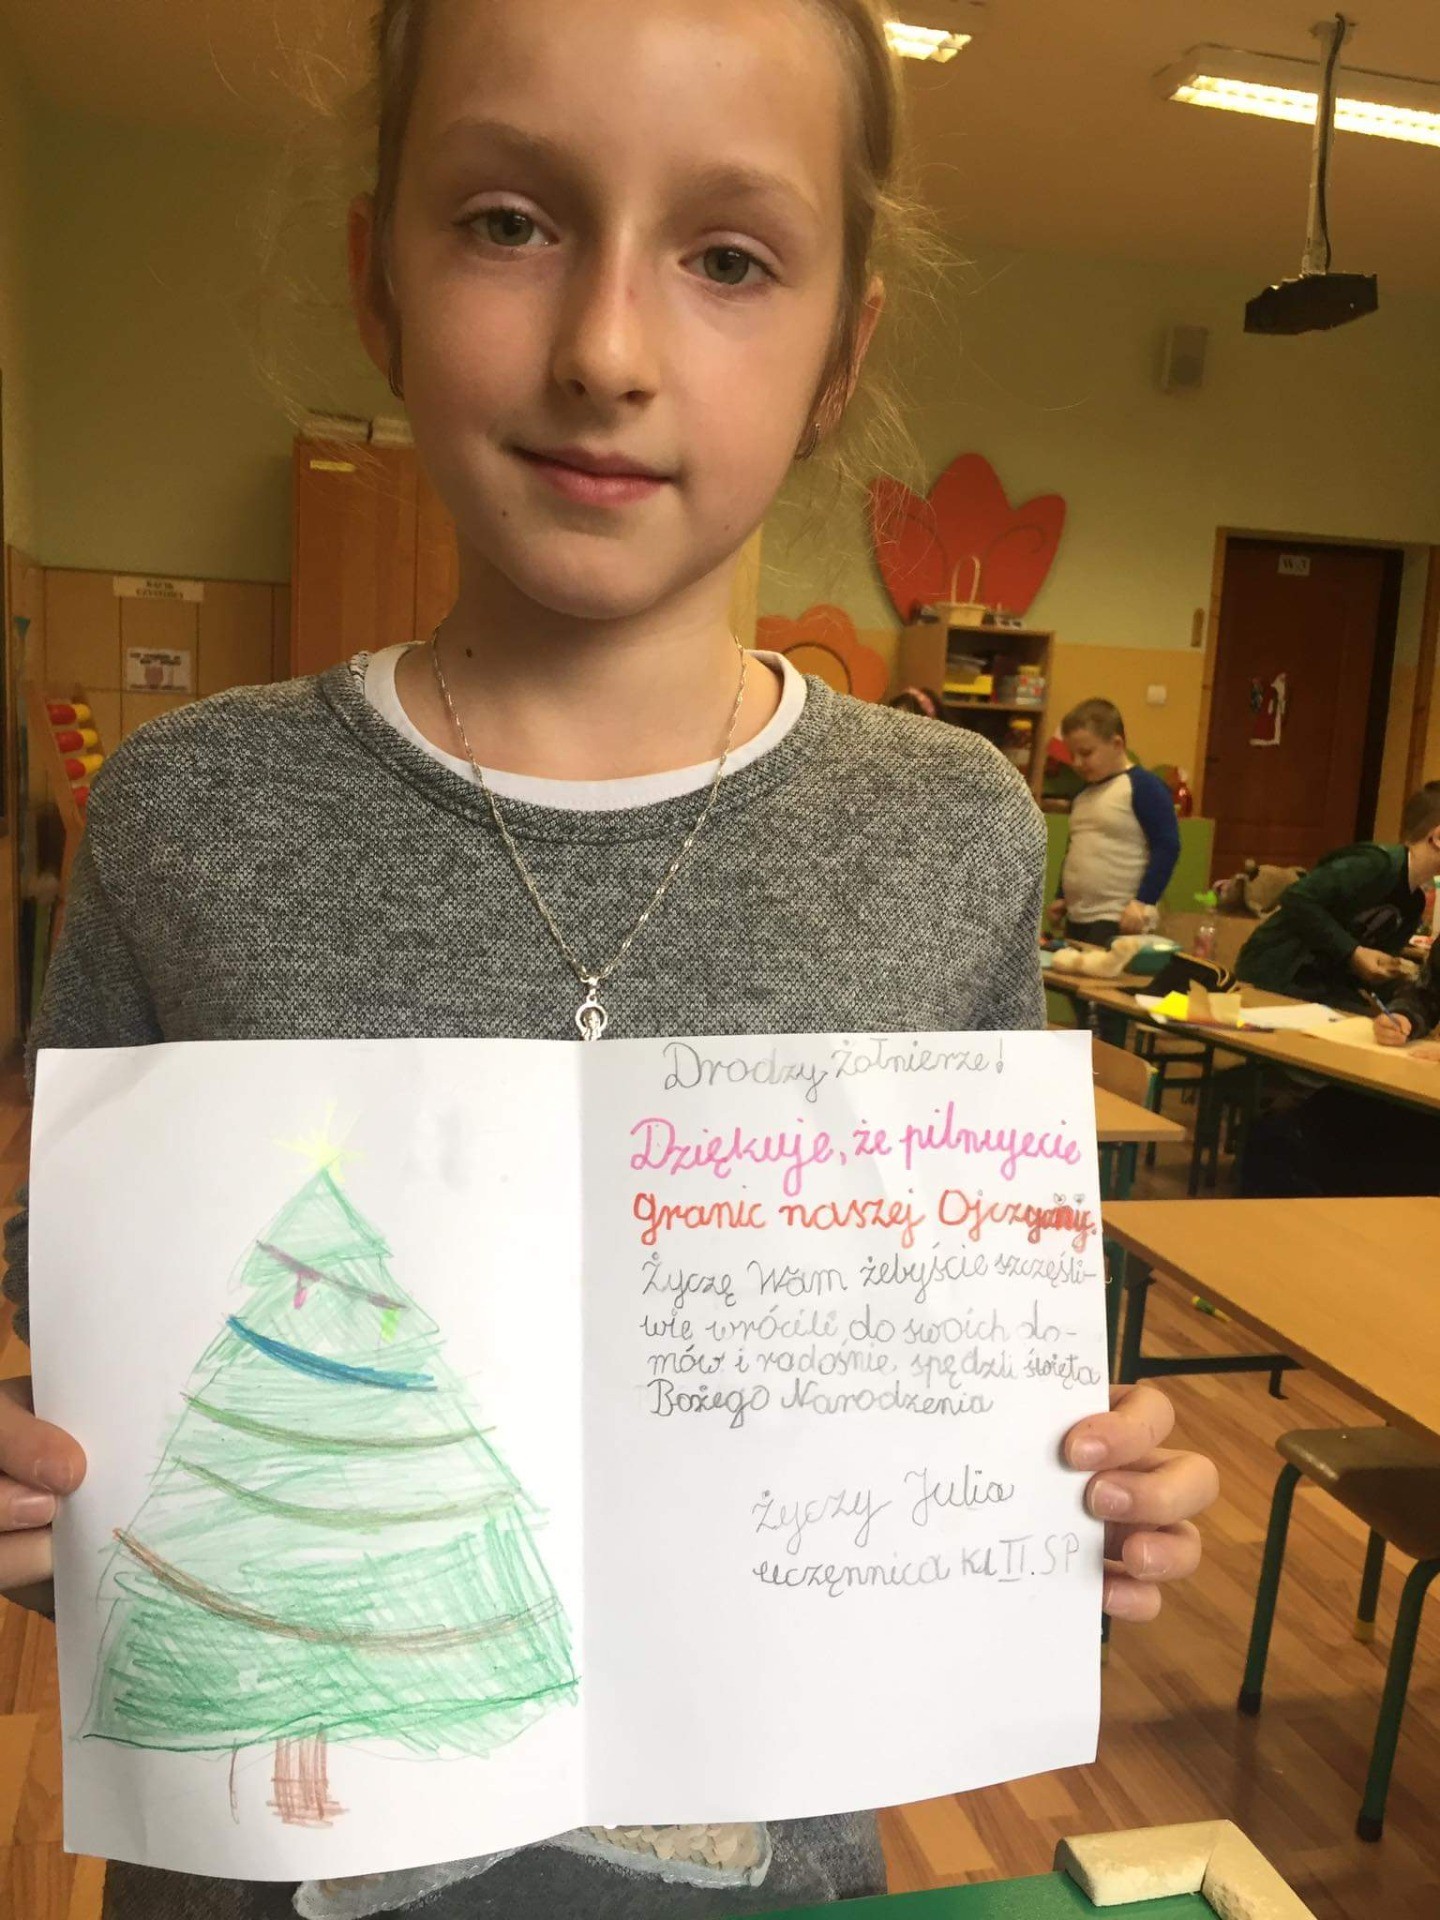 Drodzy Żołnierze!
Dziękuje, że pilnujecie
granic naszej Ojczyznie.
Życzę Wam żebyście szczęśli-
wie wrócili do swoich do-
mów i radośnie spędzili święta
Bożego Narodzenia
życzy Julia
uczennica Kl II. SP